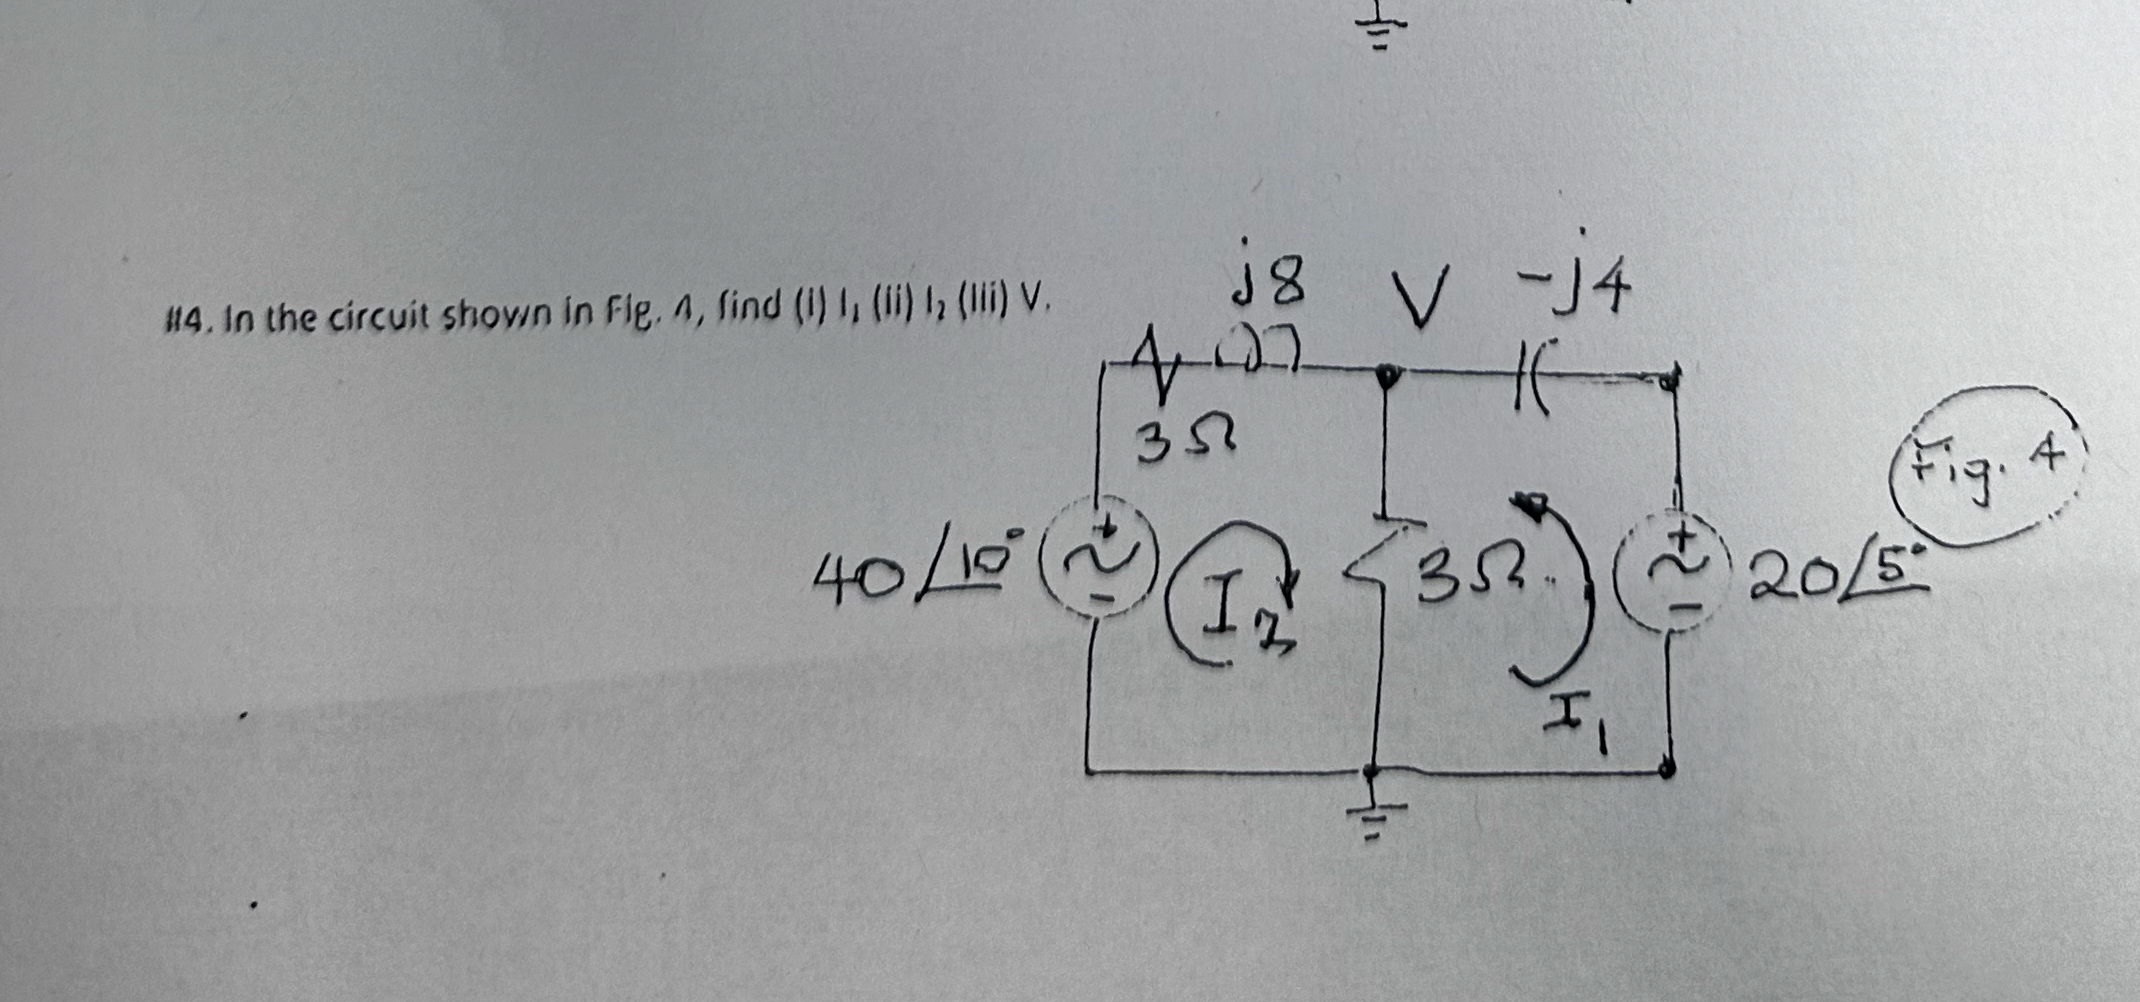 #4. In the circuit shown in Fig. 4, find (i) I₁ (ii) I₂ (iii) V.
j8 V -j4
3Ω
Fig. 4
40/10° + ~ - I₂ 3Ω + ~ - 20/5°
I₁